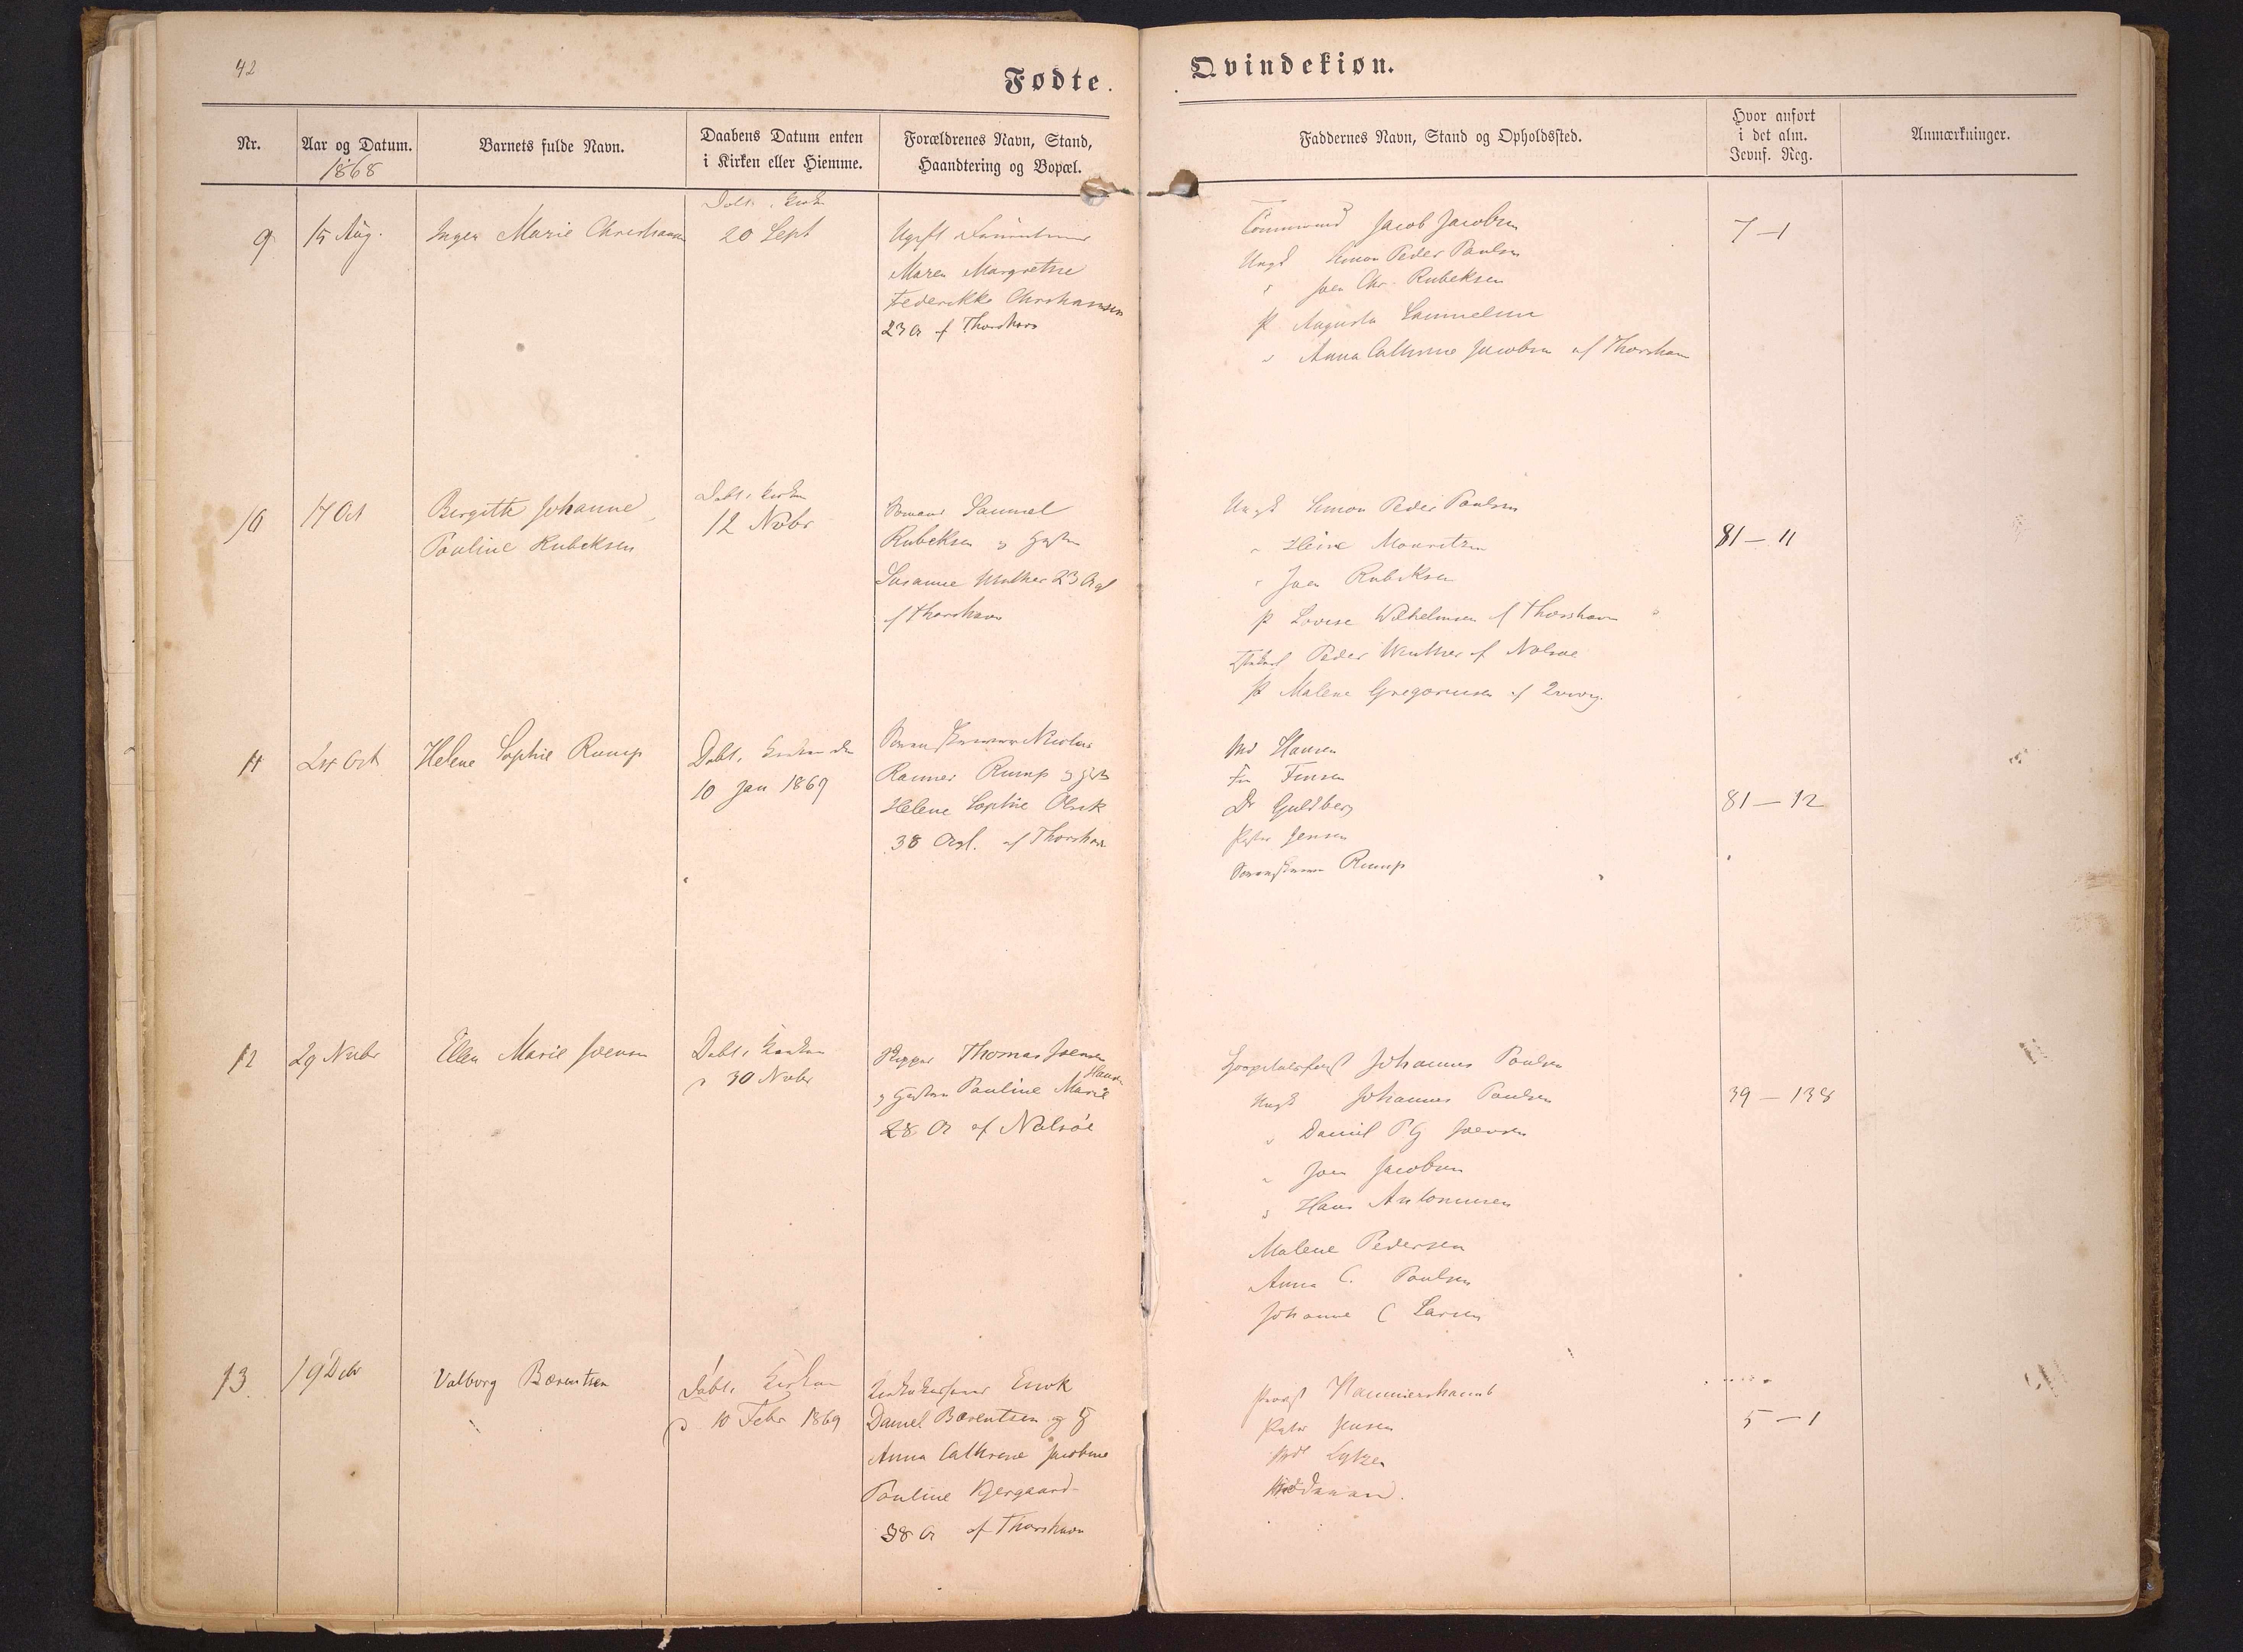 42
Fødte.
Qvindekiøn.
Nr.
Aar og Datum.
1868
Barnets fulde Navn.
Daabens Datum enten
i Kirken eller Hiemme.
Forældrenes Navn, Stand,
Haandtering og Bopæl.
Faddernes Navn, Stand og Opholdssted.
Hvor anført
i det alm.
Jevnf. Reg.
Anmærkninger.
9
15 Aug.
Inger Marie
Døbt i
20 Sept
Ugift
Maren Margrethe
23 A af Thorshavn
Jacob Jacobsen
Ungk Simon Peder Poulsen
" Joen Chr. Rubeksen
P Augusta Samuelsen
" Anna Cathrine Jacobsen af Thorshavn
7 – 1
10
17 Oct
Birgitte Johanne
Pauline Rubeksen
Døbt i Kirken
12 Nobr
Samuel
Rubeksen og Hustru
Susanne Winther 23 A gl
af Thorshavn
Ungk Simon Peder Poulsen
" Heine Mouritzen
" Joen Rubeksen
P Lovise Wilhelmsen af Thorshavn
Peder Winther af Nolsøe
P Malene Gregoriusen af
81 – 11
11
24 Oct
Helene Sophie Rump
Døbt i Kirken den
10 Jan 1869
Rump og
Helene Sophie
38 A gl. af Thorshavn
Md Hansen
Fr Finsen
Dr Guldberg
Jensen
Rump
81 – 12
12
29 Nvbr
Ellen Marie Joensen
Døbt i Kirken
d 30 Nvbr
Thomas Joensen
Hansen
og Hustru Pauline Marie
28 A af Nolsöe
Johannes Poulsen
Ungk Johannes Poulsen
" Daniel Joensen
" Joen Jacobsen
" Hans Antoniusen
Malene Pedersen
Anna C. Poulsen
Johanne C Larsen
39 – 138
13
19 Debr
Valborg Bærentsen
Døbt i Kirken
d 10 Febr 1869
Enok
Daniel Bærentsen og H
Anna Cathrine Jacobine
Pauline Kjergaard
38 A af Thorshavn
Provst Hammershaimb
Jensen
Lützen
5 – 1